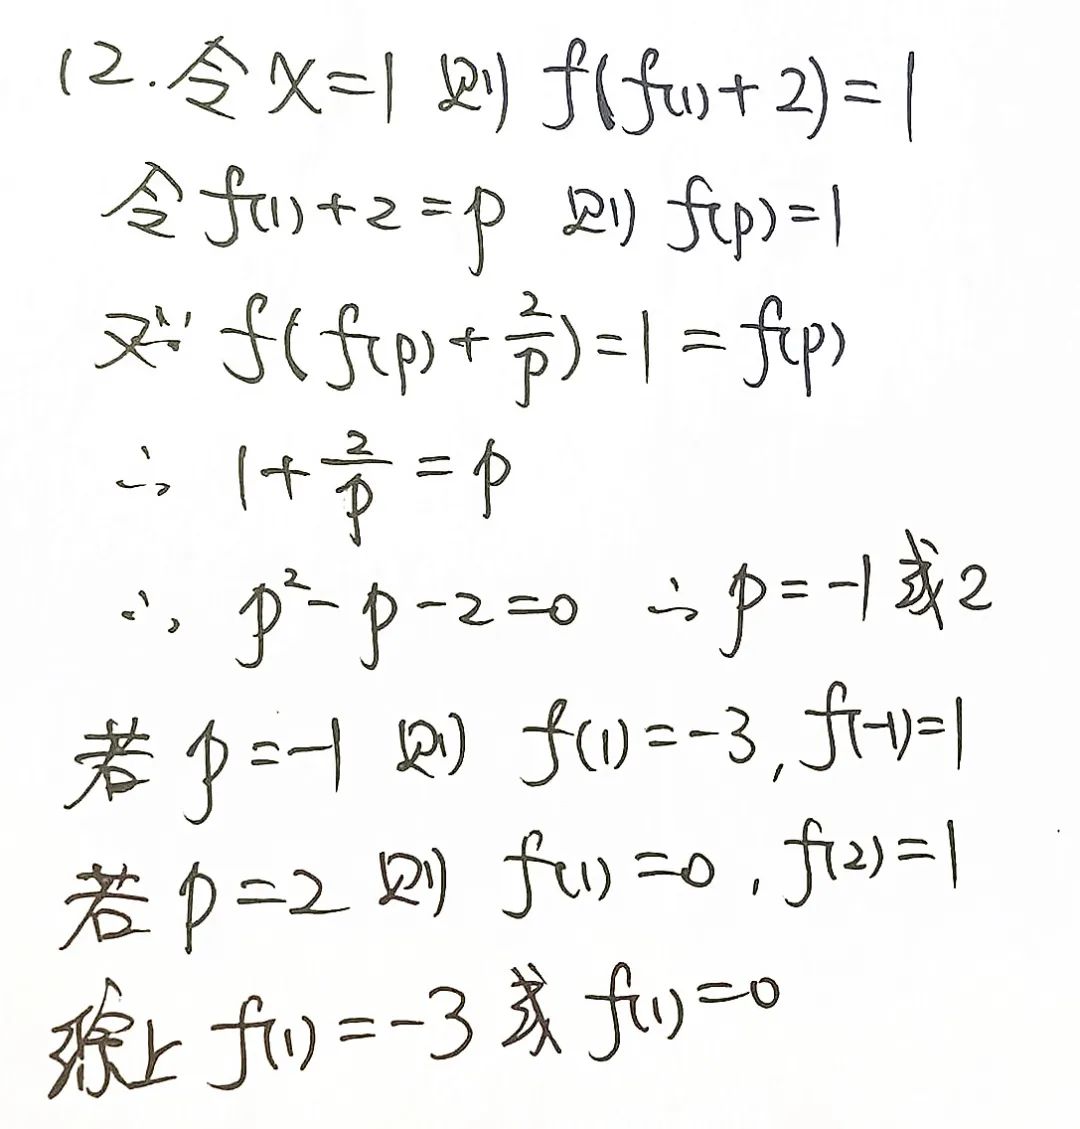 12. 令 x=1 则 f(f(1)+2)=1
令 f(1)+2=p 则 f(p)=1
又∵ f(f(p)+2/p)=1=f(p)
∴ 1+2/p=p
∴ p²-p-2=0 ∴ p=-1或2
若 p=-1 则 f(1)=-3, f(-1)=1
若 p=2 则 f(1)=0, f(2)=1
综上 f(1)=-3 或 f(1)=0